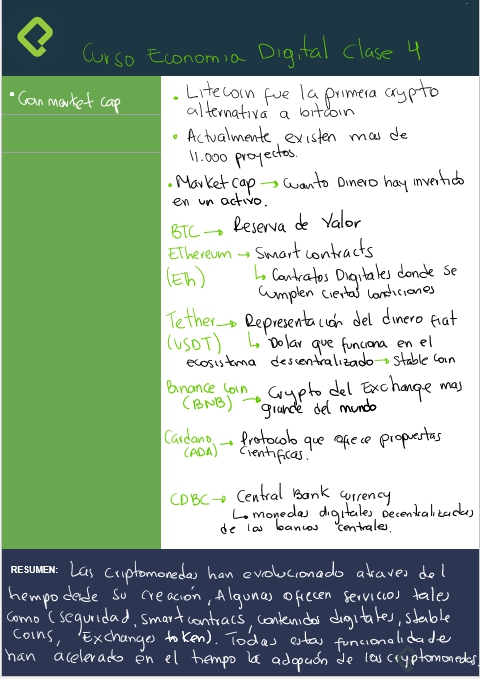 Curso Economia Digital Clase 4
• Coin market cap
• Litecoin fue la primera crypto
alternativa a bitcoin
• Actualmente existen mas de
11.000 proyectos.
• Market cap → Cuanto Dinero hay invertido
en un activo.
BTC → Reserva de Valor
Ethereum → Smart contracts
(Eth) ↳ Contratos Digitales donde se
cumplen ciertas condiciones
Tether → Representación del dinero fiat
(USDT) ↳ Dolar que funciona en el
ecosistema descentralizado → Stable Coin
Binance Coin → Crypto del Exchange mas
(BNB) grande del mundo
Cardano → Protocolo que ofrece propuestas
(ADA) cientificas.
CDBC → Central Bank currency
↳ monedas digitales Decentralizadas
de los bancos centrales.
RESUMEN: Las criptomonedas han evolucionado atraves del
tiempo desde su creación, Algunas ofrecen servicios tales
como (seguridad, smart contracs, contenidos digitales, stable
coins, Exchanges token). Todas estas funcionalidade
han acelerado en el tiempo la adopción de las cryptomonedas.